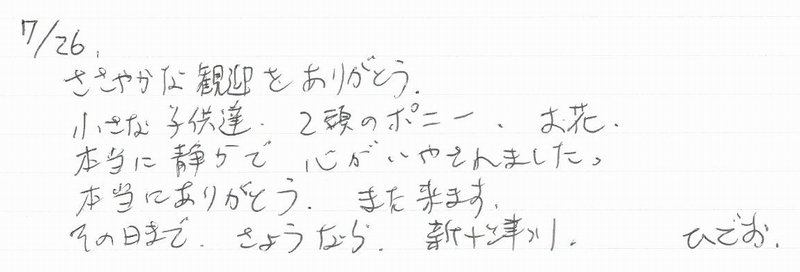 7/26.
ささやかな観迎をありがとう.
小さな子供達. 2頭のポニー、お花.
本当に静かで 心がいやされました。
本当にありがとう. また来ます.
その日まで. さようなら. 新十津川. ひでお.